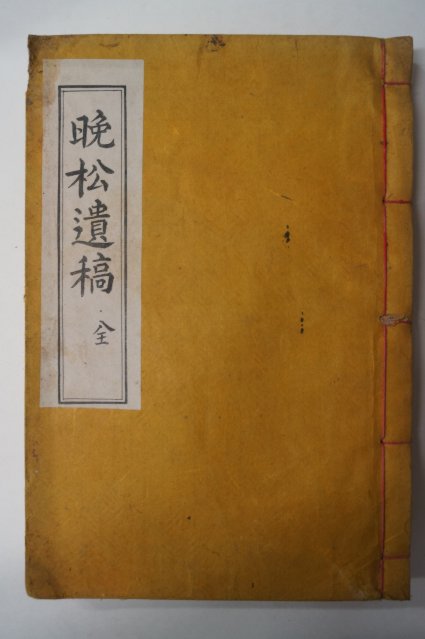 晚松遺稿 全